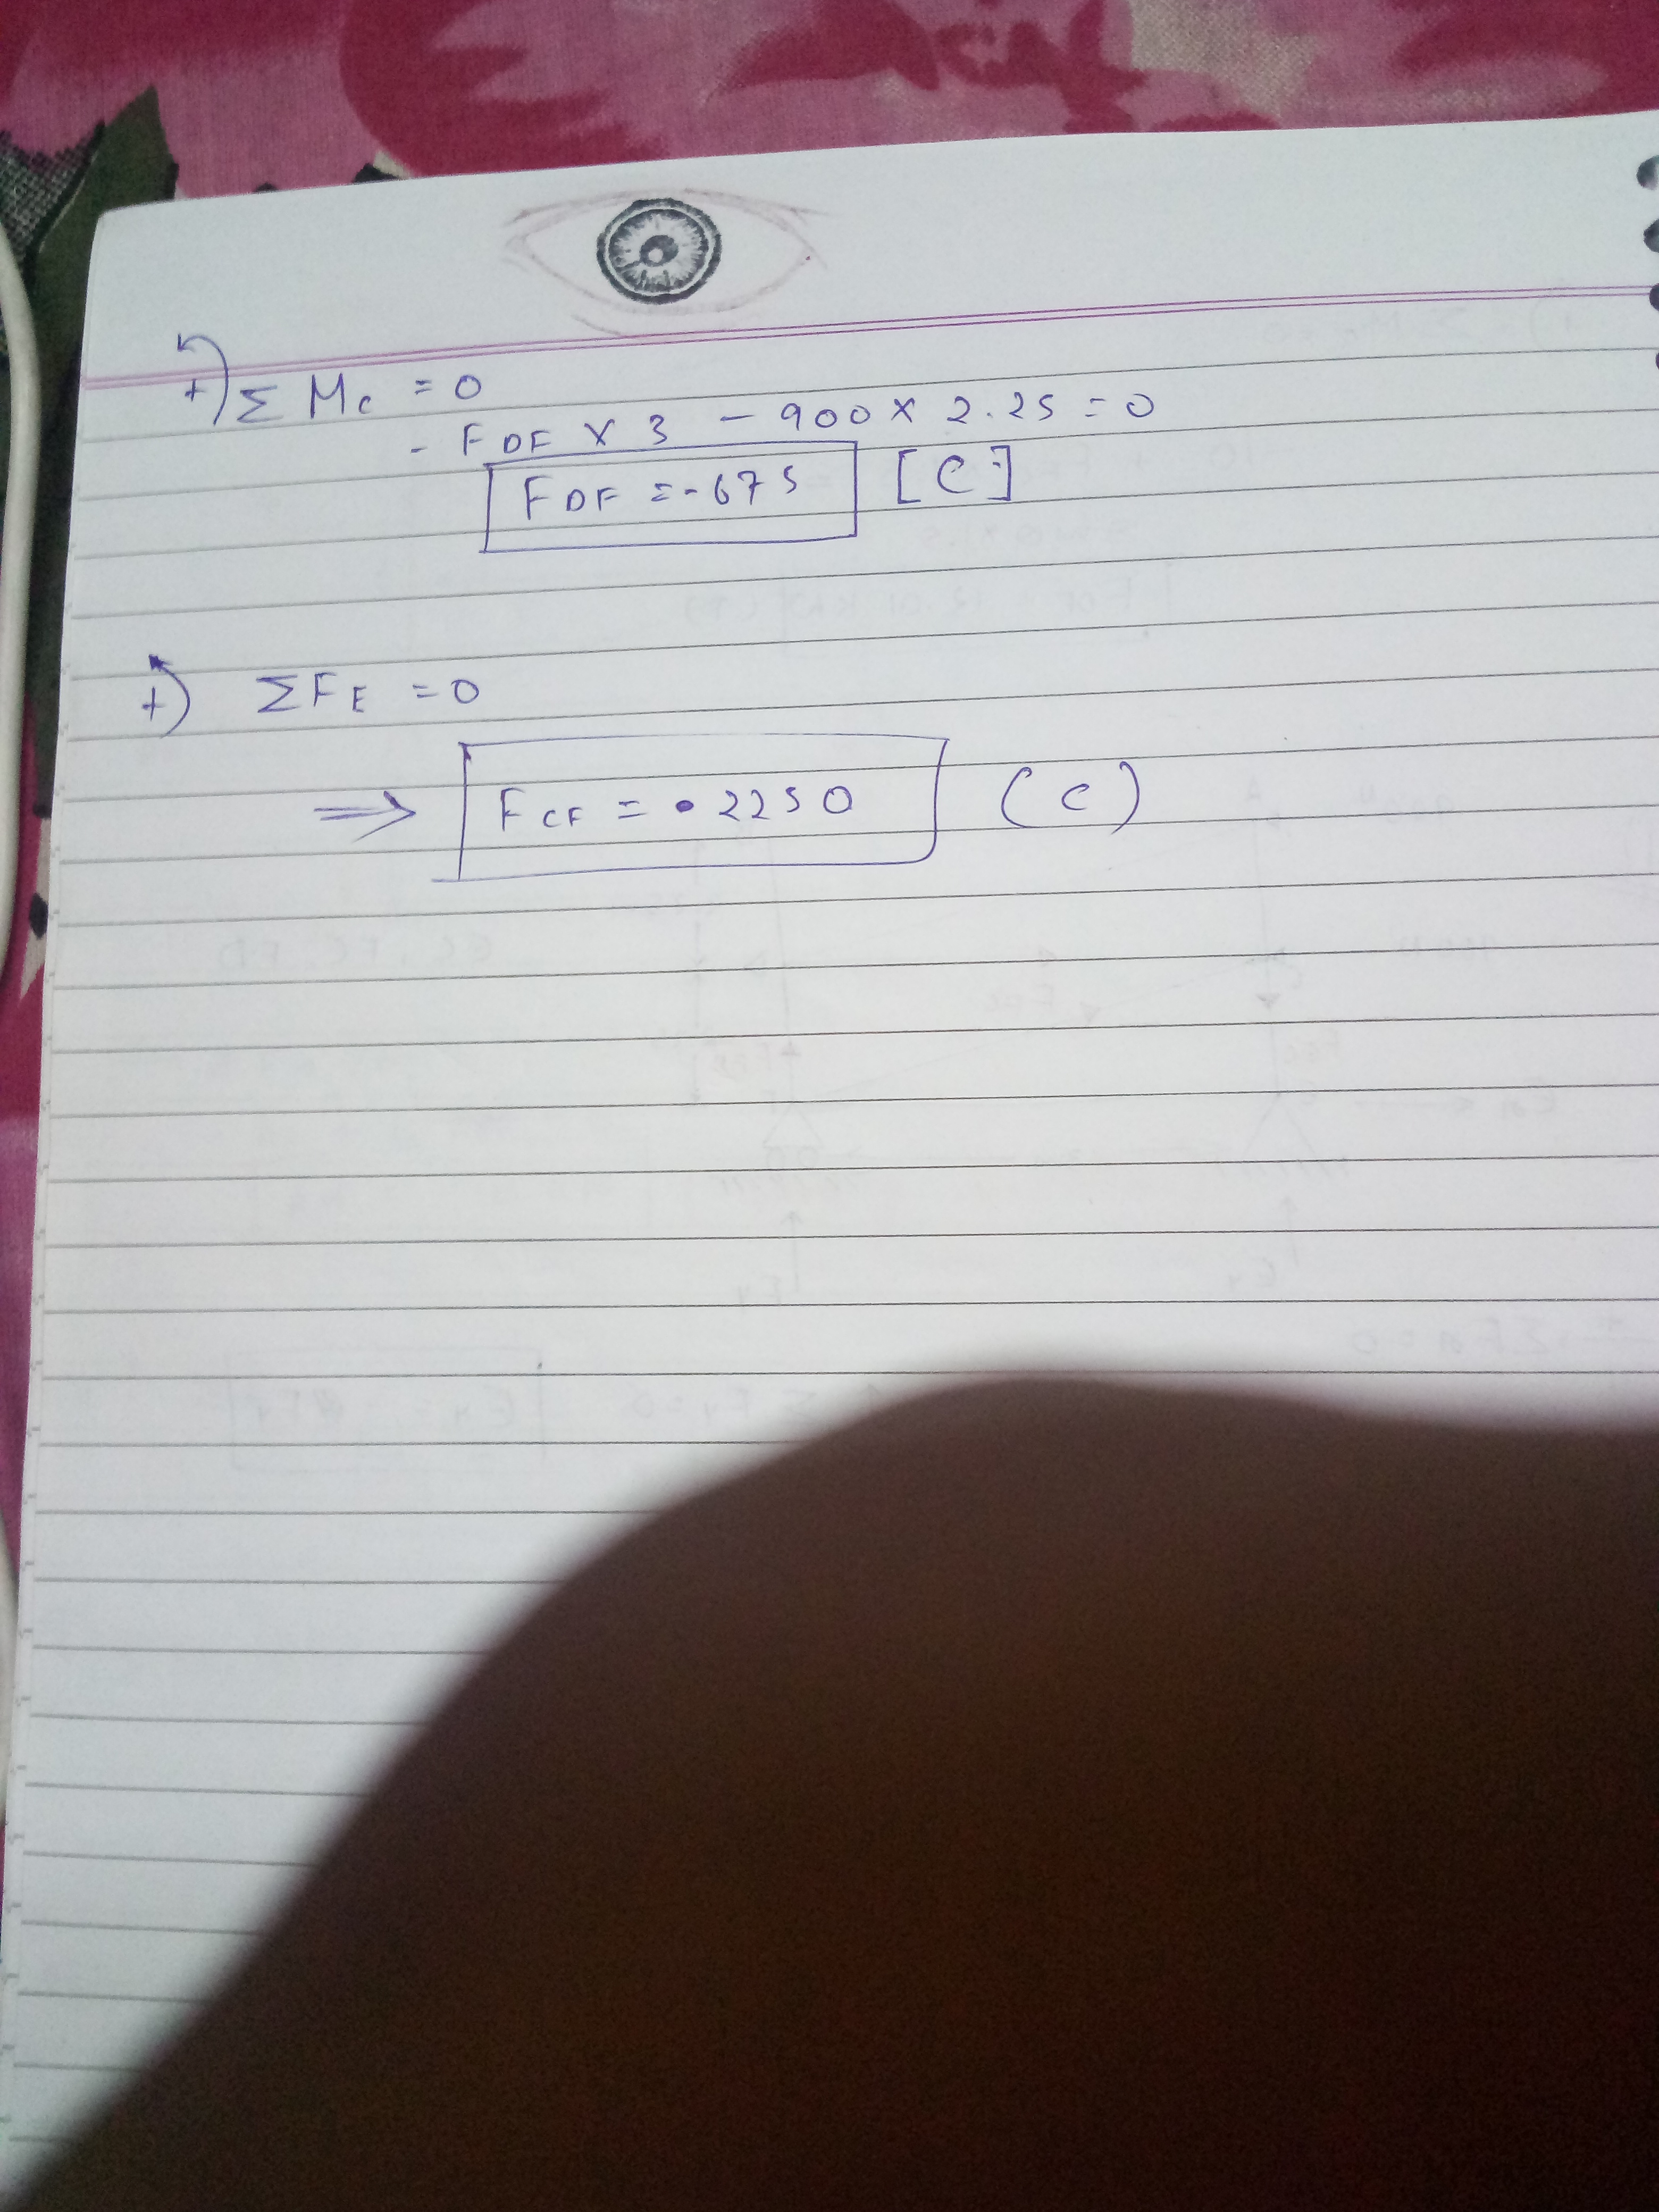 +) Σ Mc = 0
- FDF × 3 - 900 × 2.25 = 0
FDF = -675 [C]
+) ΣFE = 0
⇒ FCF = •2250 (C)